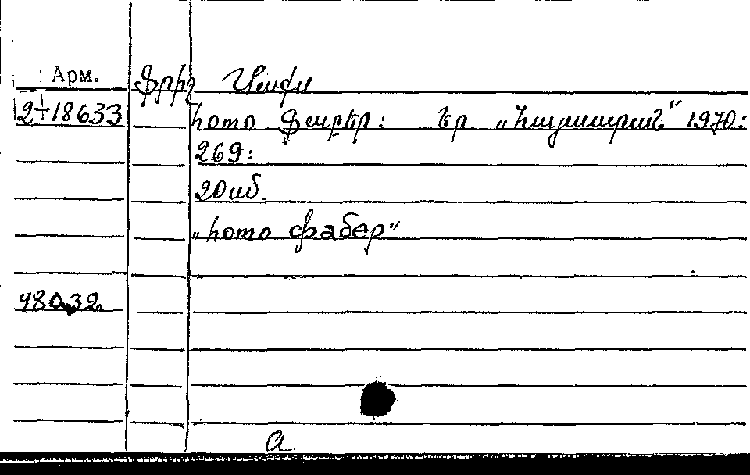 Арм.
Ֆրիշ Մաքս
2-18633
հոմո Ֆաբեր: Եր. „Հայաստան“ 1970:
269:
20սմ.
„հոմո фабер“
48032
a